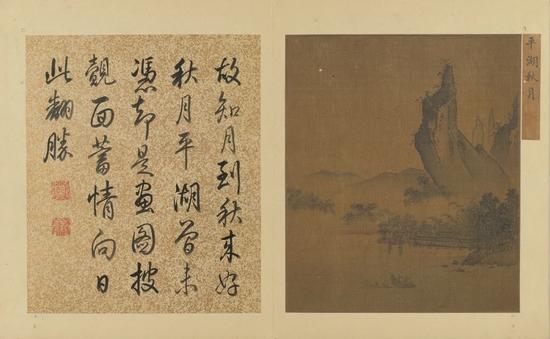 平湖秋月
故知月到秋來好
秋月平湖曾未
憑却是畫圖披
覿面蓄情向日
此翻勝